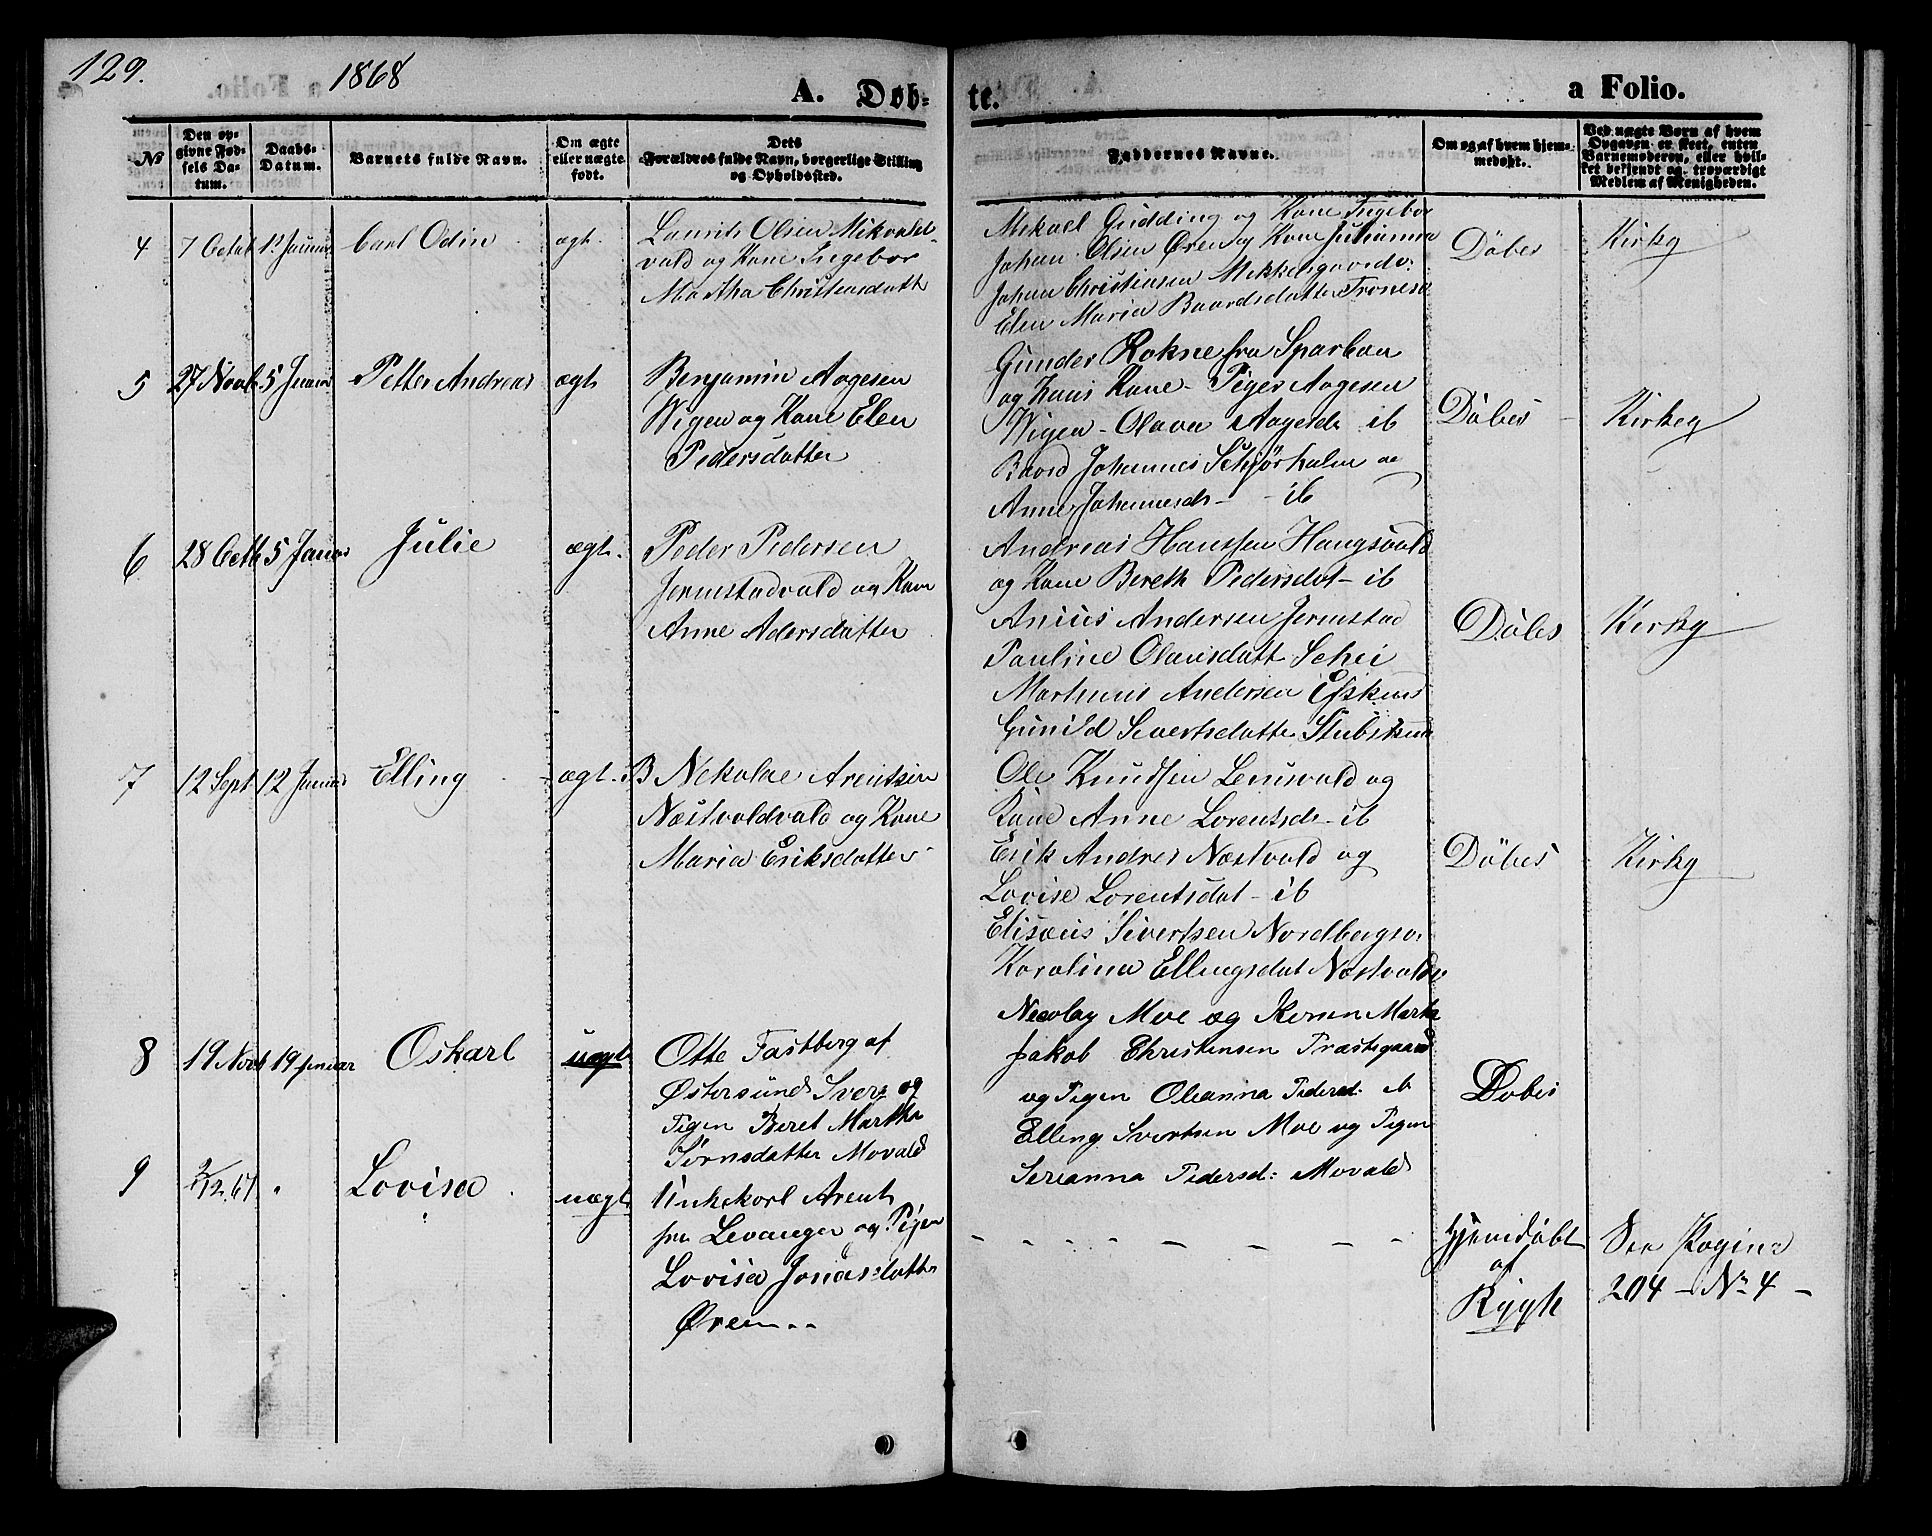 129.
1868
A. Døb-
te.
a Folio.
№
Den op-
givne Fød-
sels Da-
tum.
Daabs-
Datum.
Barnets fulde Navn.
Om ægte
eller uægte
født.
Dets
Forældres fulde Navn, borgerlige Stilling
og Opholdssted.
Faddernes Navne.
Om og af hvem hjem-
medøbt.
Ved uægte Børn af hvem
Opgaven er skeet, enten
Barnemoderen, eller hvil-
ket bekjendt og troværdigt
Medlem af Menigheden.
4
7 Octob
Januar
Carl Odin
ægt.
Laurits Olsen Mikvold-
vald og Kone Ingebor
Martha Christensdatt
Mikael Gudding og Kone Ingebor
Johan Olsen Ören og Kone Julianna
Johan Christensen Mikkelsgaardv:
Elen Maria Baardsdatter Trones
Döbes
Kirky
5
27 Novb
5 Januar
Petter Andreas
ægt
Benjamin Aagesen
Wigen og Kone Elen
Pedersdatter
Gunder Rokne fra Sparbau
og hans Kone - Peger Aagesen
Wigen - Olava Aagesdr ib
Baard Johannes
Anne Johannesdr - ib
Döbes
Kirkeg
6
28 Octb
5 Januar
Julie
ægt.
Peder Pedersen
Jermstadvald og Kone
Anne Adersdatter
Andreas Hanssen Haugsvald
og Kone Bereth Pedersdat - ib
Anius Andersen Jermstad
Pauline Olausdatt Schei
Marthinus Andersen
Gunild Sivertsdatter
Döbes
Kirky
7
12 Sept
12 Januar
Elling
ægt.
Nekolae Arentsen
Næstvoldvald og Kone
Maria Eriksdatter
Ole Knudsen Lensvald og
Kone Anne Lorentsdr - ib
Erik Andrea Næstvald og
Lovise Lorentsdat - ib
Elisæus Sivertsen Nordbergsv.
Karolina Ellingsdat Næstvaldv
Döbes
Kirky
8
19 Novb
19 januar
Oskarl
uægt
Otte Fastberg af
Østersund Sverg og
Pigen Beret Martha
Sörnsdatter Movald
Nicolay Moe og Konen Marta
Jakob Christensen Præstegaard
og Pigen Oleanna Pedersd: ib
Elling Svertsen Moe og Pigen
Sereanna Pedersd: Movald
Döbes
9
2/12.67
"
Lovisa
uægt
Unkekarl Arent
fra Levanger og Pigen
Lovisa Jonasdatter
Ören
Hjemdöbt
af
Rygh
See Pagina
204 - Nr 4 -